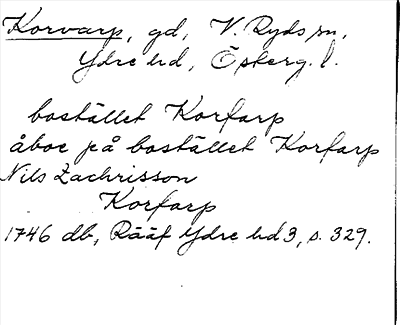 Korvarp, gd, V. Ryds sn,
Ydre hd, Österg. l.
bostället Korfarp
åboe på bostället Korfarp
Nils Zachrisson
Korfarp
1746 db, Rääf Ydre hd 3, s. 329.